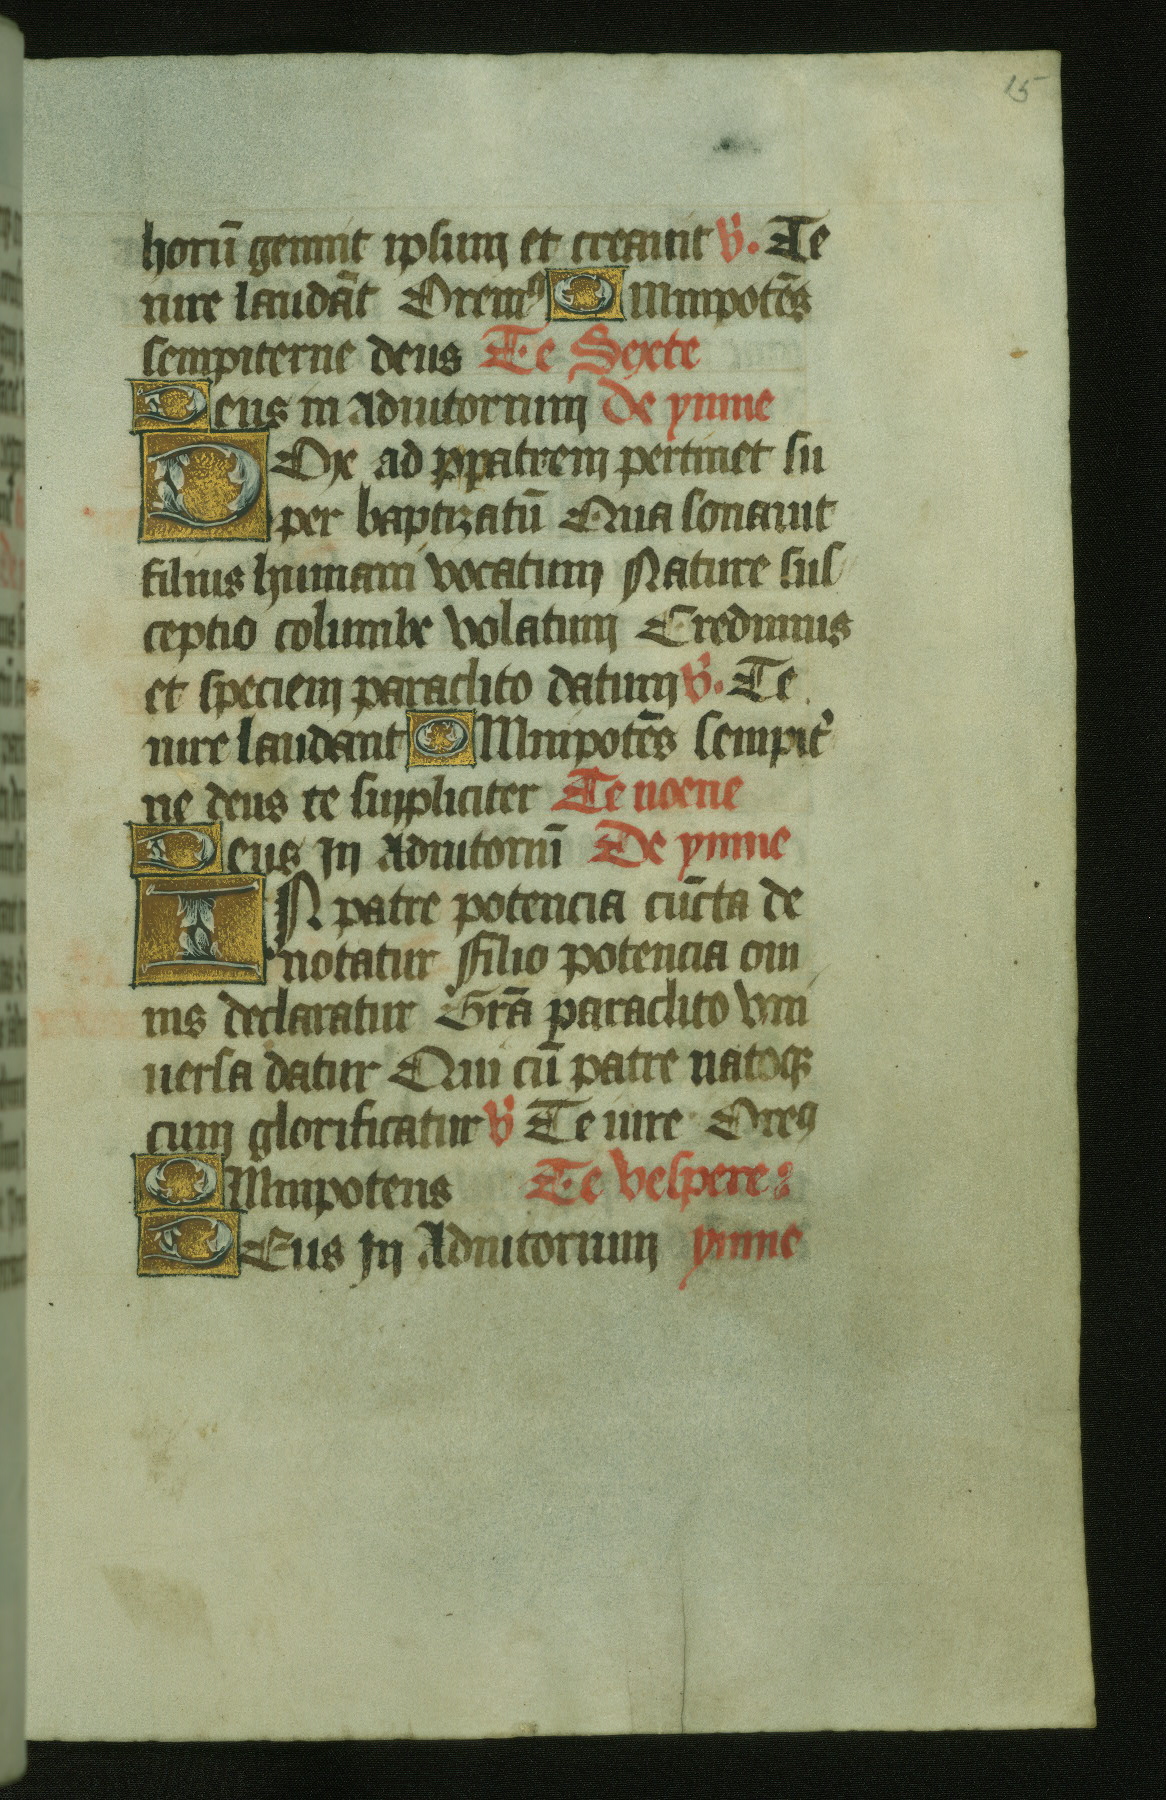 15
horū genuit ipsum et creauit v̄. Te
iure laudāt Oremꝰ OMnipotēs
sempiterne deus Te Sexte
Deus in adiutorium De ymne
VOx ad ppatrem pertinet su
per baptizatū Qua sonauit
filius humani vocatum Nature sus
ceptio columbe volatum Credimus
et speciem paraclito datum v̄. Te
iure laudant OMnipotēs sempit̉
ne deus te suppliciter Te noene
Deus In Adiutoriū De ymne
IN patre potencia cūcta de
notatur Filio potencia om
nis declaratur Grā paraclito vni
uersa datur Qui cū patre natoqꝫ
cum glorificatur v̄ Te iure Oreꝰ
OMnipotens Te vespere:
DEus In Adiutorium ymne